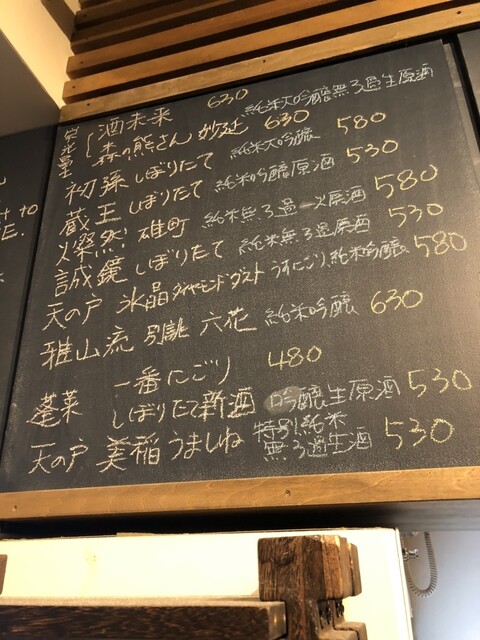 酒未来 630 純米大吟醸無ろ過生原酒
森の熊さん 630
初孫 しぼりたて 純米大吟醸 580
蔵王 しぼりたて 純米吟醸原酒 530
燦然 雄町 純米無ろ過一火原酒 580
誠鏡 しぼりたて 純米無ろ過原酒 530
天の戸 氷晶ダイヤモンドダスト うすにごり純米吟醸 580
雅山流 別誂 六花 純米吟醸 630
一番にごり 480
蓬莱 しぼりたて新酒 吟醸生原酒 530
天の戸 美稲うましね 特別純米 無ろ過生酒 530
to